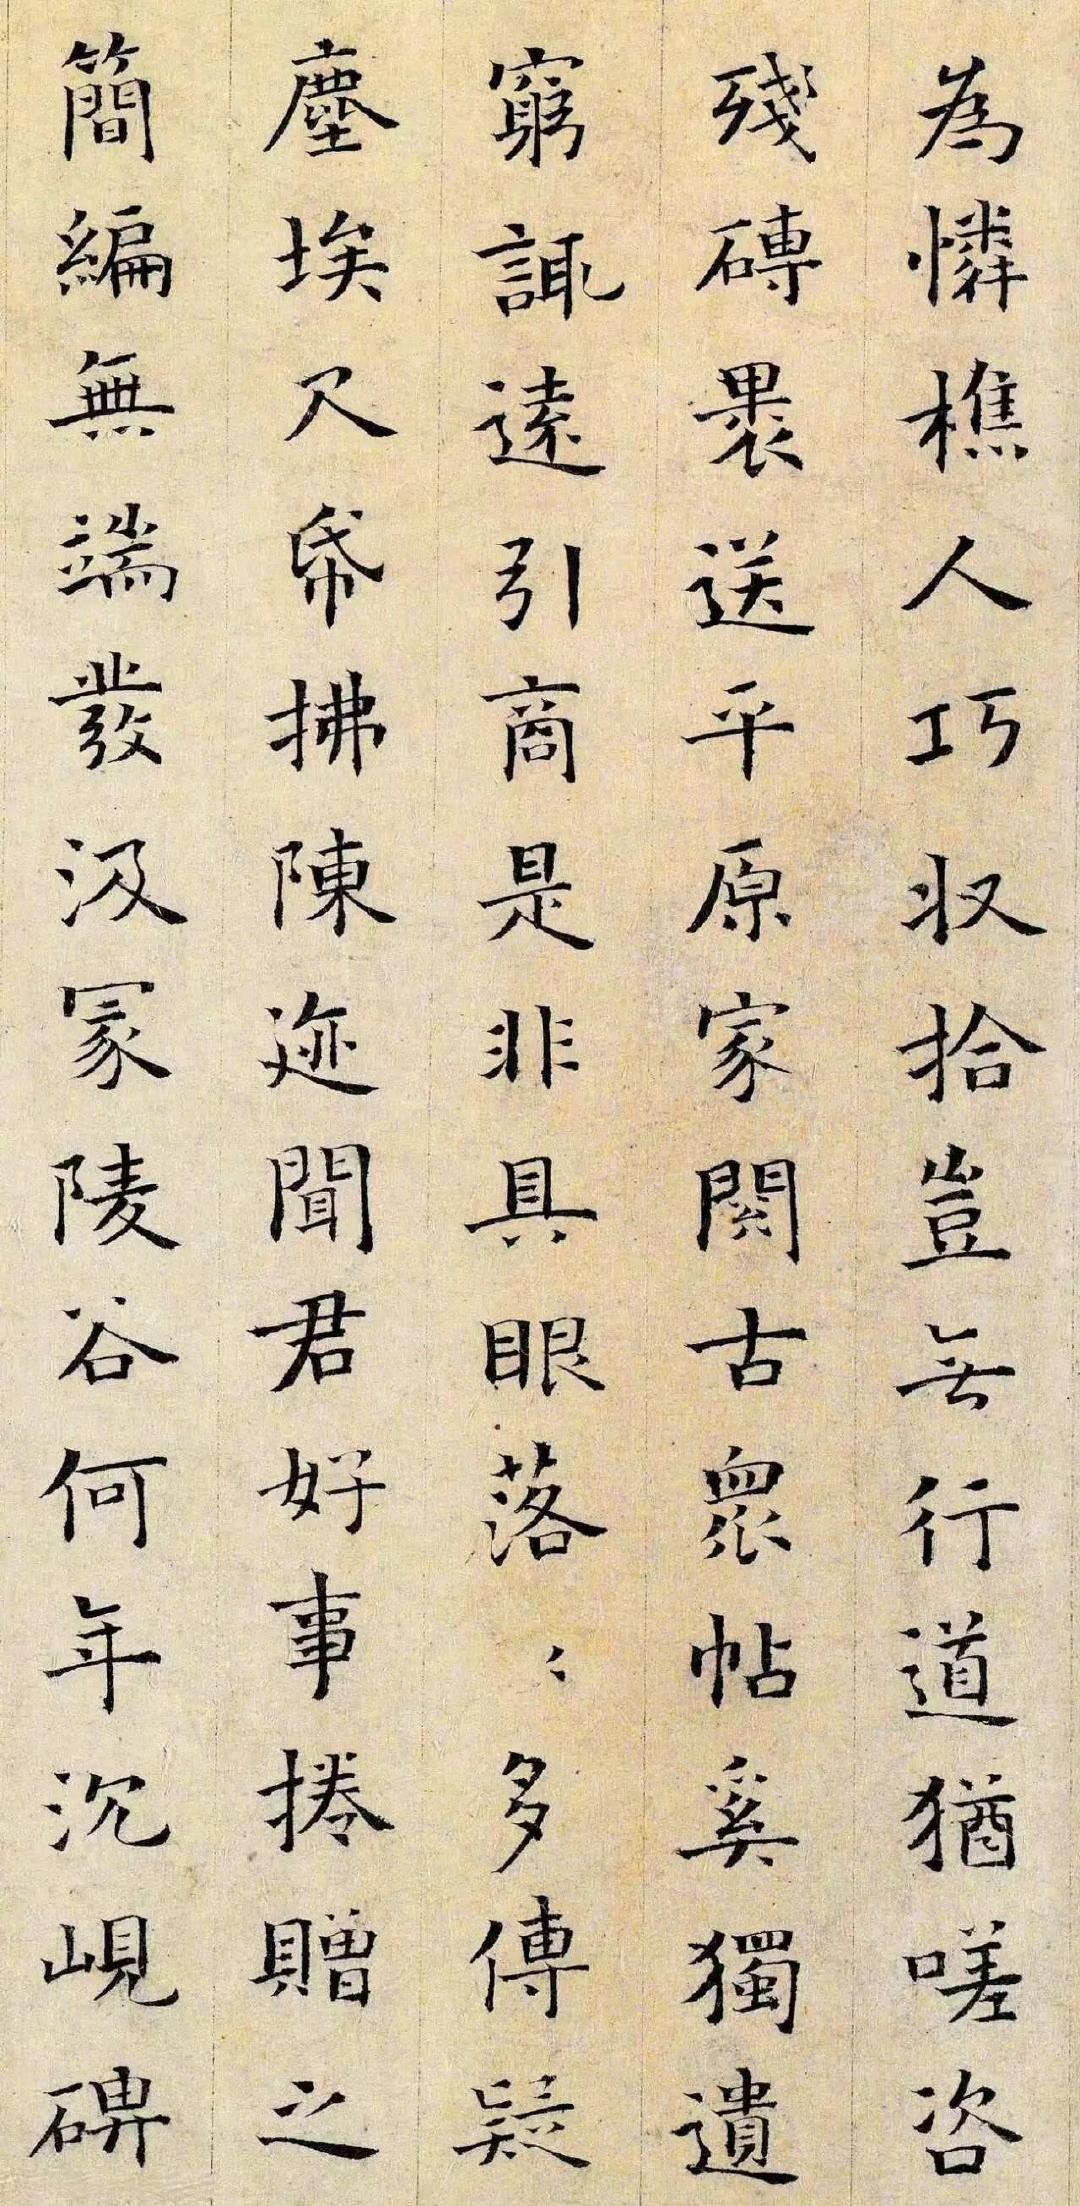 為憐樵人巧収拾豈無行道猶嗟咨
殘磚褁送平原家閱古衆帖奚獨遺
窮諏遠引商是非具眼落〻多傳疑
塵埃尺帋拂陳迹聞君好事捲贈之
簡編無端發汲冢陵谷何年沉峴碑